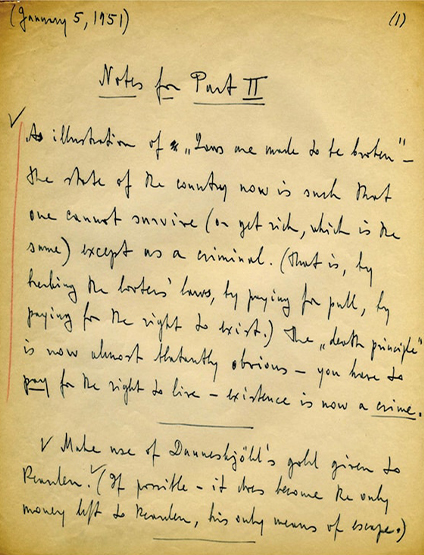 (January 5, 1951) (1)
Notes for Part II
As illustration of "Laws are made to be broken" –
the state of the country now is such that
one cannot survive (or get rich, which is the
same) except as a criminal. (That is, by
breaking the looters' laws, by paying for pull, by
paying for the right to exist.) The "death principle"
is now almost blatantly obvious – you have to
pay for the right to live – existence is now a crime.
Make use of Danneskjöld's gold given to
Rearden. (If possible – it does become the only
money left to Rearden, his only means of escape.)